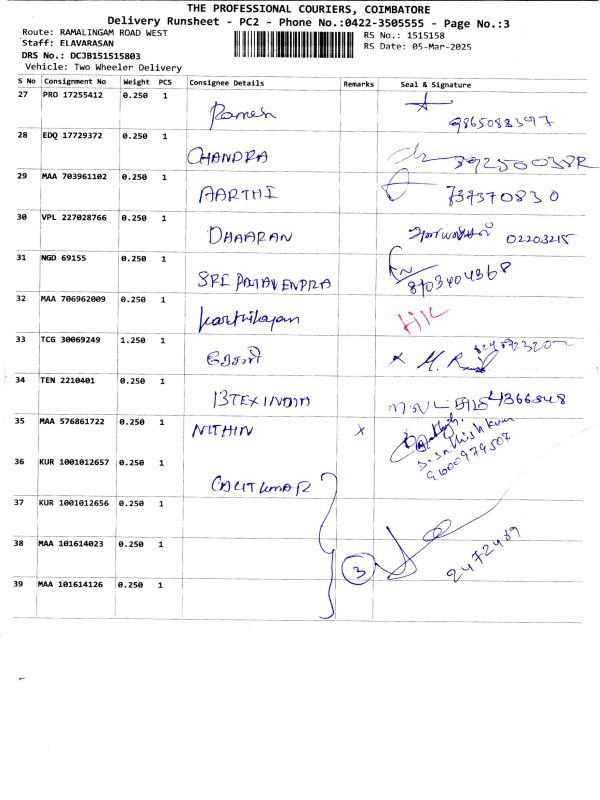 THE PROFESSIONAL COURIERS, COIMBATORE
Delivery Runsheet - PC2 - Phone No.:0422-3505555 - Page No.:3
Route: RAMALINGAM ROAD WEST
Staff: ELAVARASAN
DRS No.: DCJB151515803
Vehicle: Two Wheeler Delivery
RS No.: 1515158
RS Date: 05-Mar-2025
S No Consignment No Weight PCS Consignee Details Remarks Seal & Signature
27 PRO 17255412 0.250 1 Ramesh
28 EDQ 17729372 0.250 1 CHANDRA
29 MAA 703961102 0.250 1 AARTHI 737370830
30 VPL 227028766 0.250 1 DHAARAN 02203215
31 NGD 69155 0.250 1 SRI 8103404368
32 MAA 706962009 0.250 1 karthikayan
33 TCG 30069249 1.250 1
34 TEN 2210401 0.250 1 BTEX INDIA
35 MAA 576861722 0.250 1 NITHIN X 9600979508
36 KUR 1001012657 0.250 1
37 KUR 1001012656 0.250 1
38 MAA 101614023 0.250 1 3 2472489
39 MAA 101614126 0.250 1